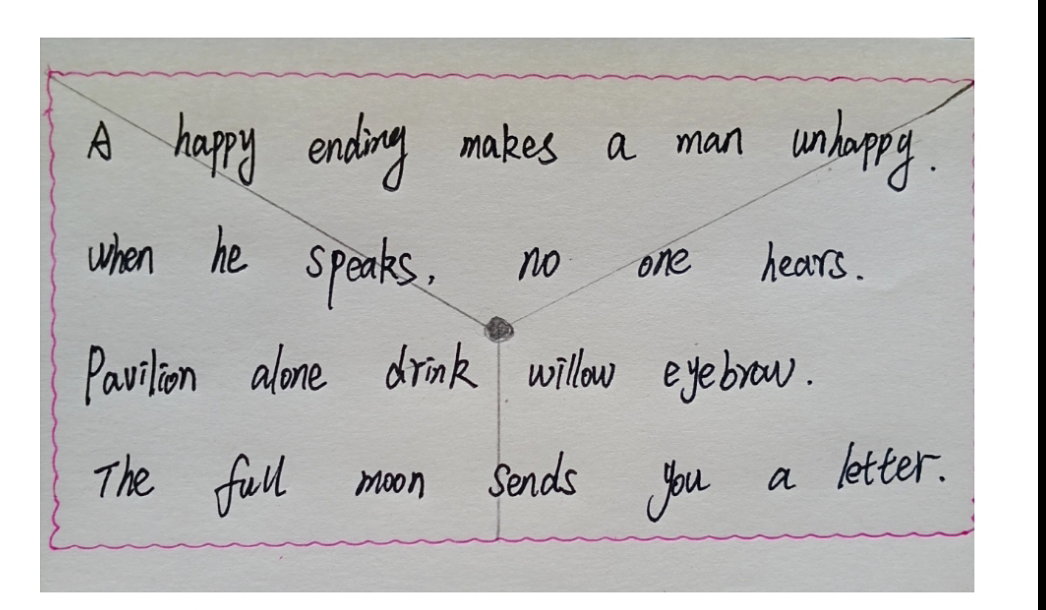 A happy ending makes a man unhappy.
when he speaks, no one hears.
Pavilion alone drink willow eyebrow.
The full moon sends you a letter.